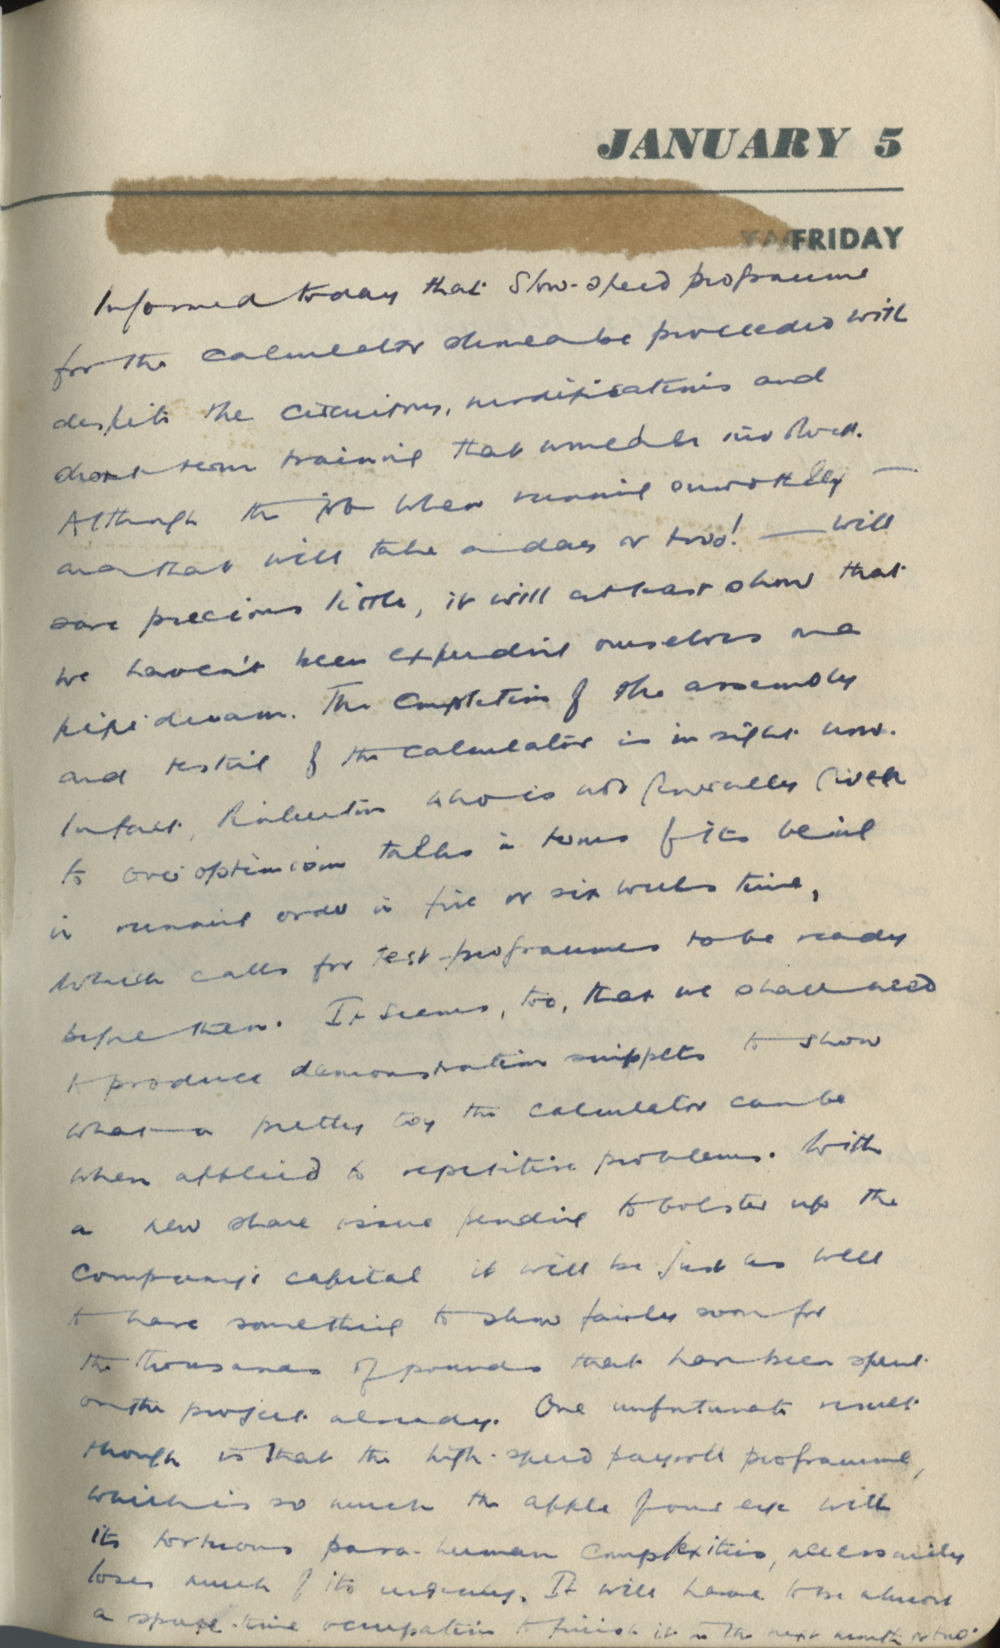 JANUARY 5
FRIDAY
Informed today that slow-speed programme
for the calculator should be proceeded with
despite the circuitry, modifications and
short term training that would be involved.
Although the job when running smoothly —
and that will take a day or two! — will
save precious little, it will at least show that
we haven't been expending ourselves on a
pipe dream. The completion of the assembly
and testing of the calculator is in sight now.
In fact, who is not generally given
to over optimism talks in terms of its being
in running order in five or six weeks time,
which calls for test-programmes to be ready
before then. It seems, too, that we shall need
to produce demonstration snippets to show
what a pretty toy the calculator can be
when applied to repetitive problems. With
a new share issue pending to bolster up the
company's capital it will be just as well
to have something to show fairly soon for
the thousands of pounds that have been spent
on the project already. One unfortunate result
though is that the high-speed payroll programme,
which is so much the apple of our eye with
its tortuous para-human complexities, necessarily
loses much of its urgency. It will have to be almost
a spare-time occupation to finish it in the next month or two.